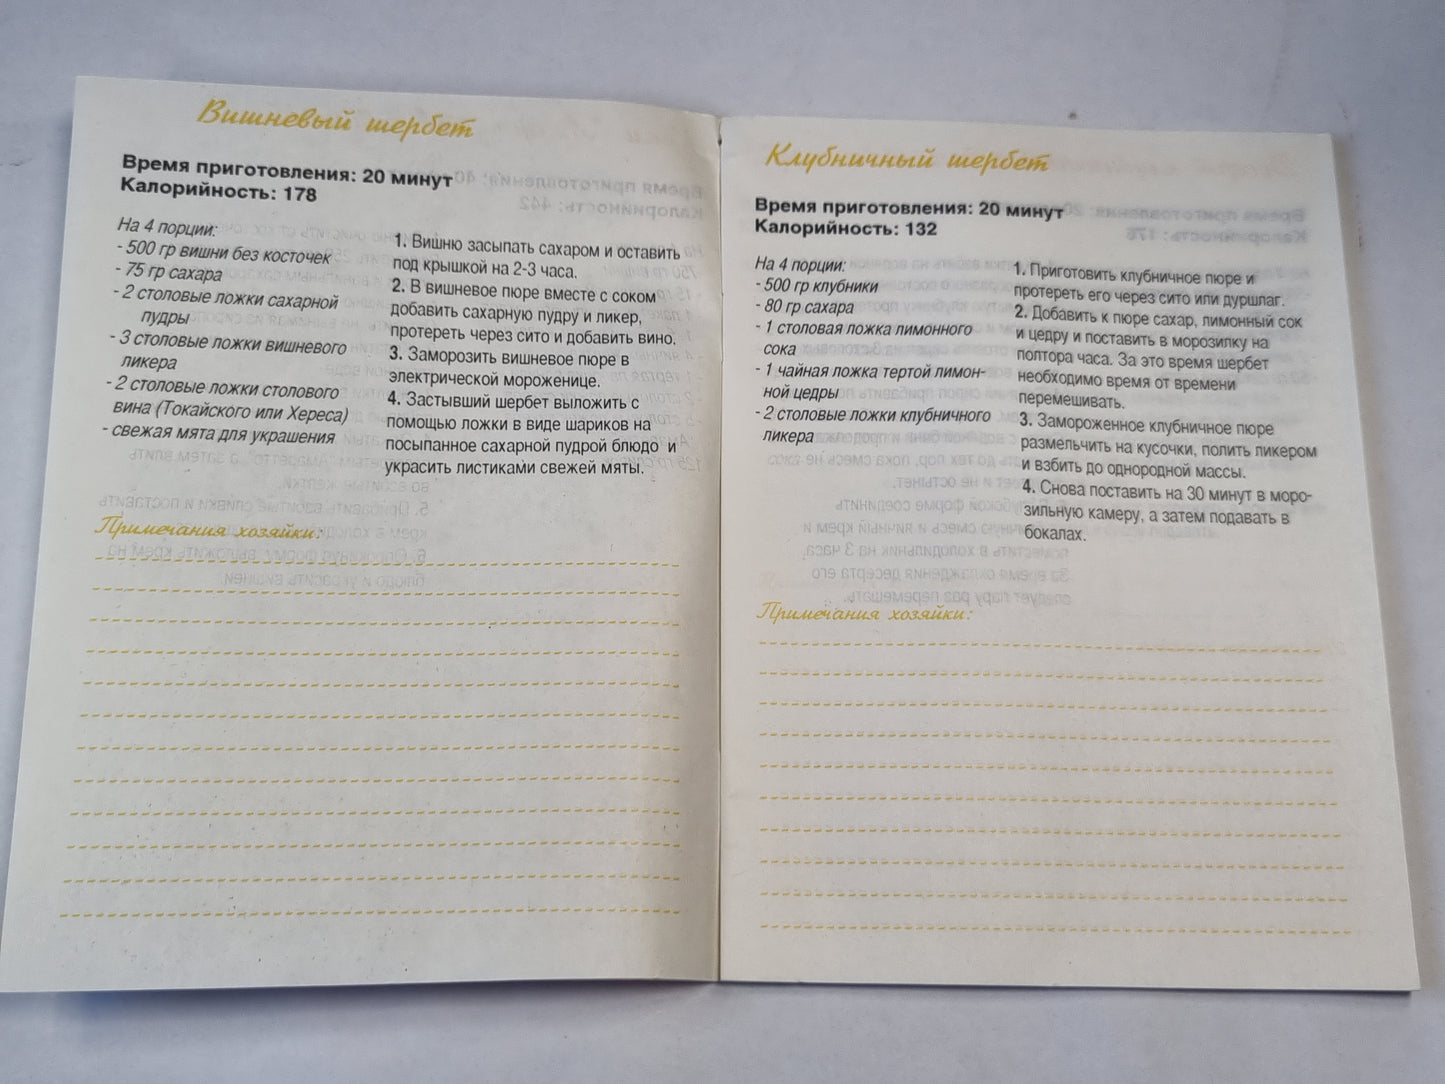 Вишневый шербет
Время приготовления: 20 минут
Калорийность: 178
На 4 порции:
- 500 гр вишни без косточек
- 75 гр сахара
- 2 столовые ложки сахарной
пудры
- 3 столовые ложки вишневого
ликера
- 2 столовые ложки столового
вина (Токайского или Хереса)
- свежая мята для украшения
1. Вишню засыпать сахаром и оставить
под крышкой на 2-3 часа.
2. В вишневое пюре вместе с соком
добавить сахарную пудру и ликер,
протереть через сито и добавить вино.
3. Заморозить вишневое пюре в
электрической мороженице.
4. Застывший шербет выложить с
помощью ложки в виде шариков на
посыпанное сахарной пудрой блюдо и
украсить листиками свежей мяты.
Примечания хозяйки:
Клубничный шербет
Время приготовления: 20 минут
Калорийность: 132
На 4 порции:
- 500 гр клубники
- 80 гр сахара
- 1 столовая ложка лимонного
сока
- 1 чайная ложка тертой лимон-
ной цедры
- 2 столовые ложки клубничного
ликера
1. Приготовить клубничное пюре и
протереть его через сито или дуршлаг.
2. Добавить к пюре сахар, лимонный сок
и цедру и поставить в морозилку на
полтора часа. За это время шербет
необходимо время от времени
перемешивать.
3. Замороженное клубничное пюре
размельчить на кусочки, полить ликером
и взбить до однородной массы.
4. Снова поставить на 30 минут в моро-
зильную камеру, а затем подавать в
бокалах.
Примечания хозяйки: